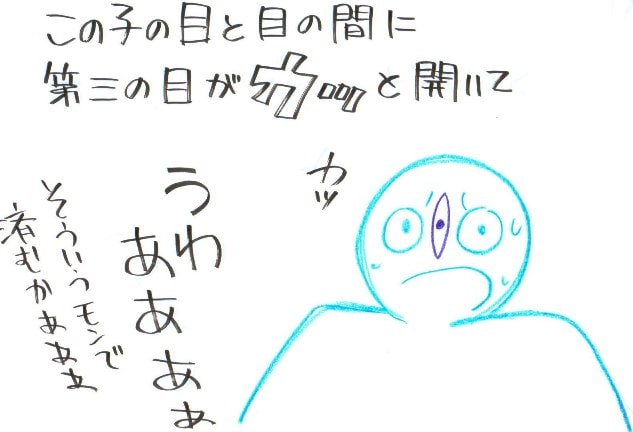 この子の目と目の間に
第三の目が と開いて
カッ
うわ
ああぁぁ
そういうモンで
済むかぁぁぁ